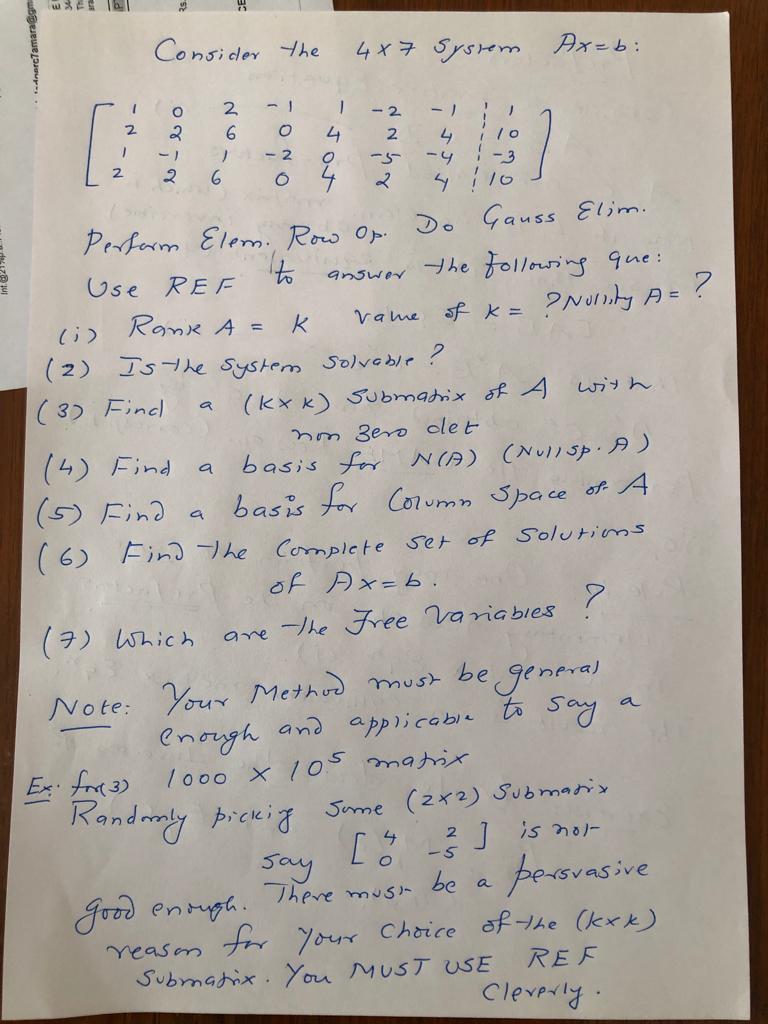 Consider the 4x7 System Ax=b:
1 0 2 -1 1 -2 -1 1
2 2 6 0 4 2 4 10
1 -1 1 -2 0 -5 -4 -3
2 2 6 0 4 2 4 10
Perform Elem. Row Op. Do Gauss Elim.
Use REF to answer the following que:
(i) Rank A = K value of K = ? Nullity A = ?
(2) Is the System Solvable?
(3) Find a (KxK) Submatrix of A with
non zero det
(4) Find a basis for N(A) (Null sp. A)
(5) Find a basis for Column Space of A
(6) Find the Complete set of Solutions
of Ax=b.
(7) Which are the Free Variables?
Note: Your Method must be general
enough and applicable to say a
Ex. for(3) 1000 x 10^5 matrix
Randomly picking some (2x2) Submatrix
say [4 2
0 -5] is not
good enough. There must be a persvasive
reason for your choice of the (KxK)
Submatrix. You MUST USE REF
Cleverly.